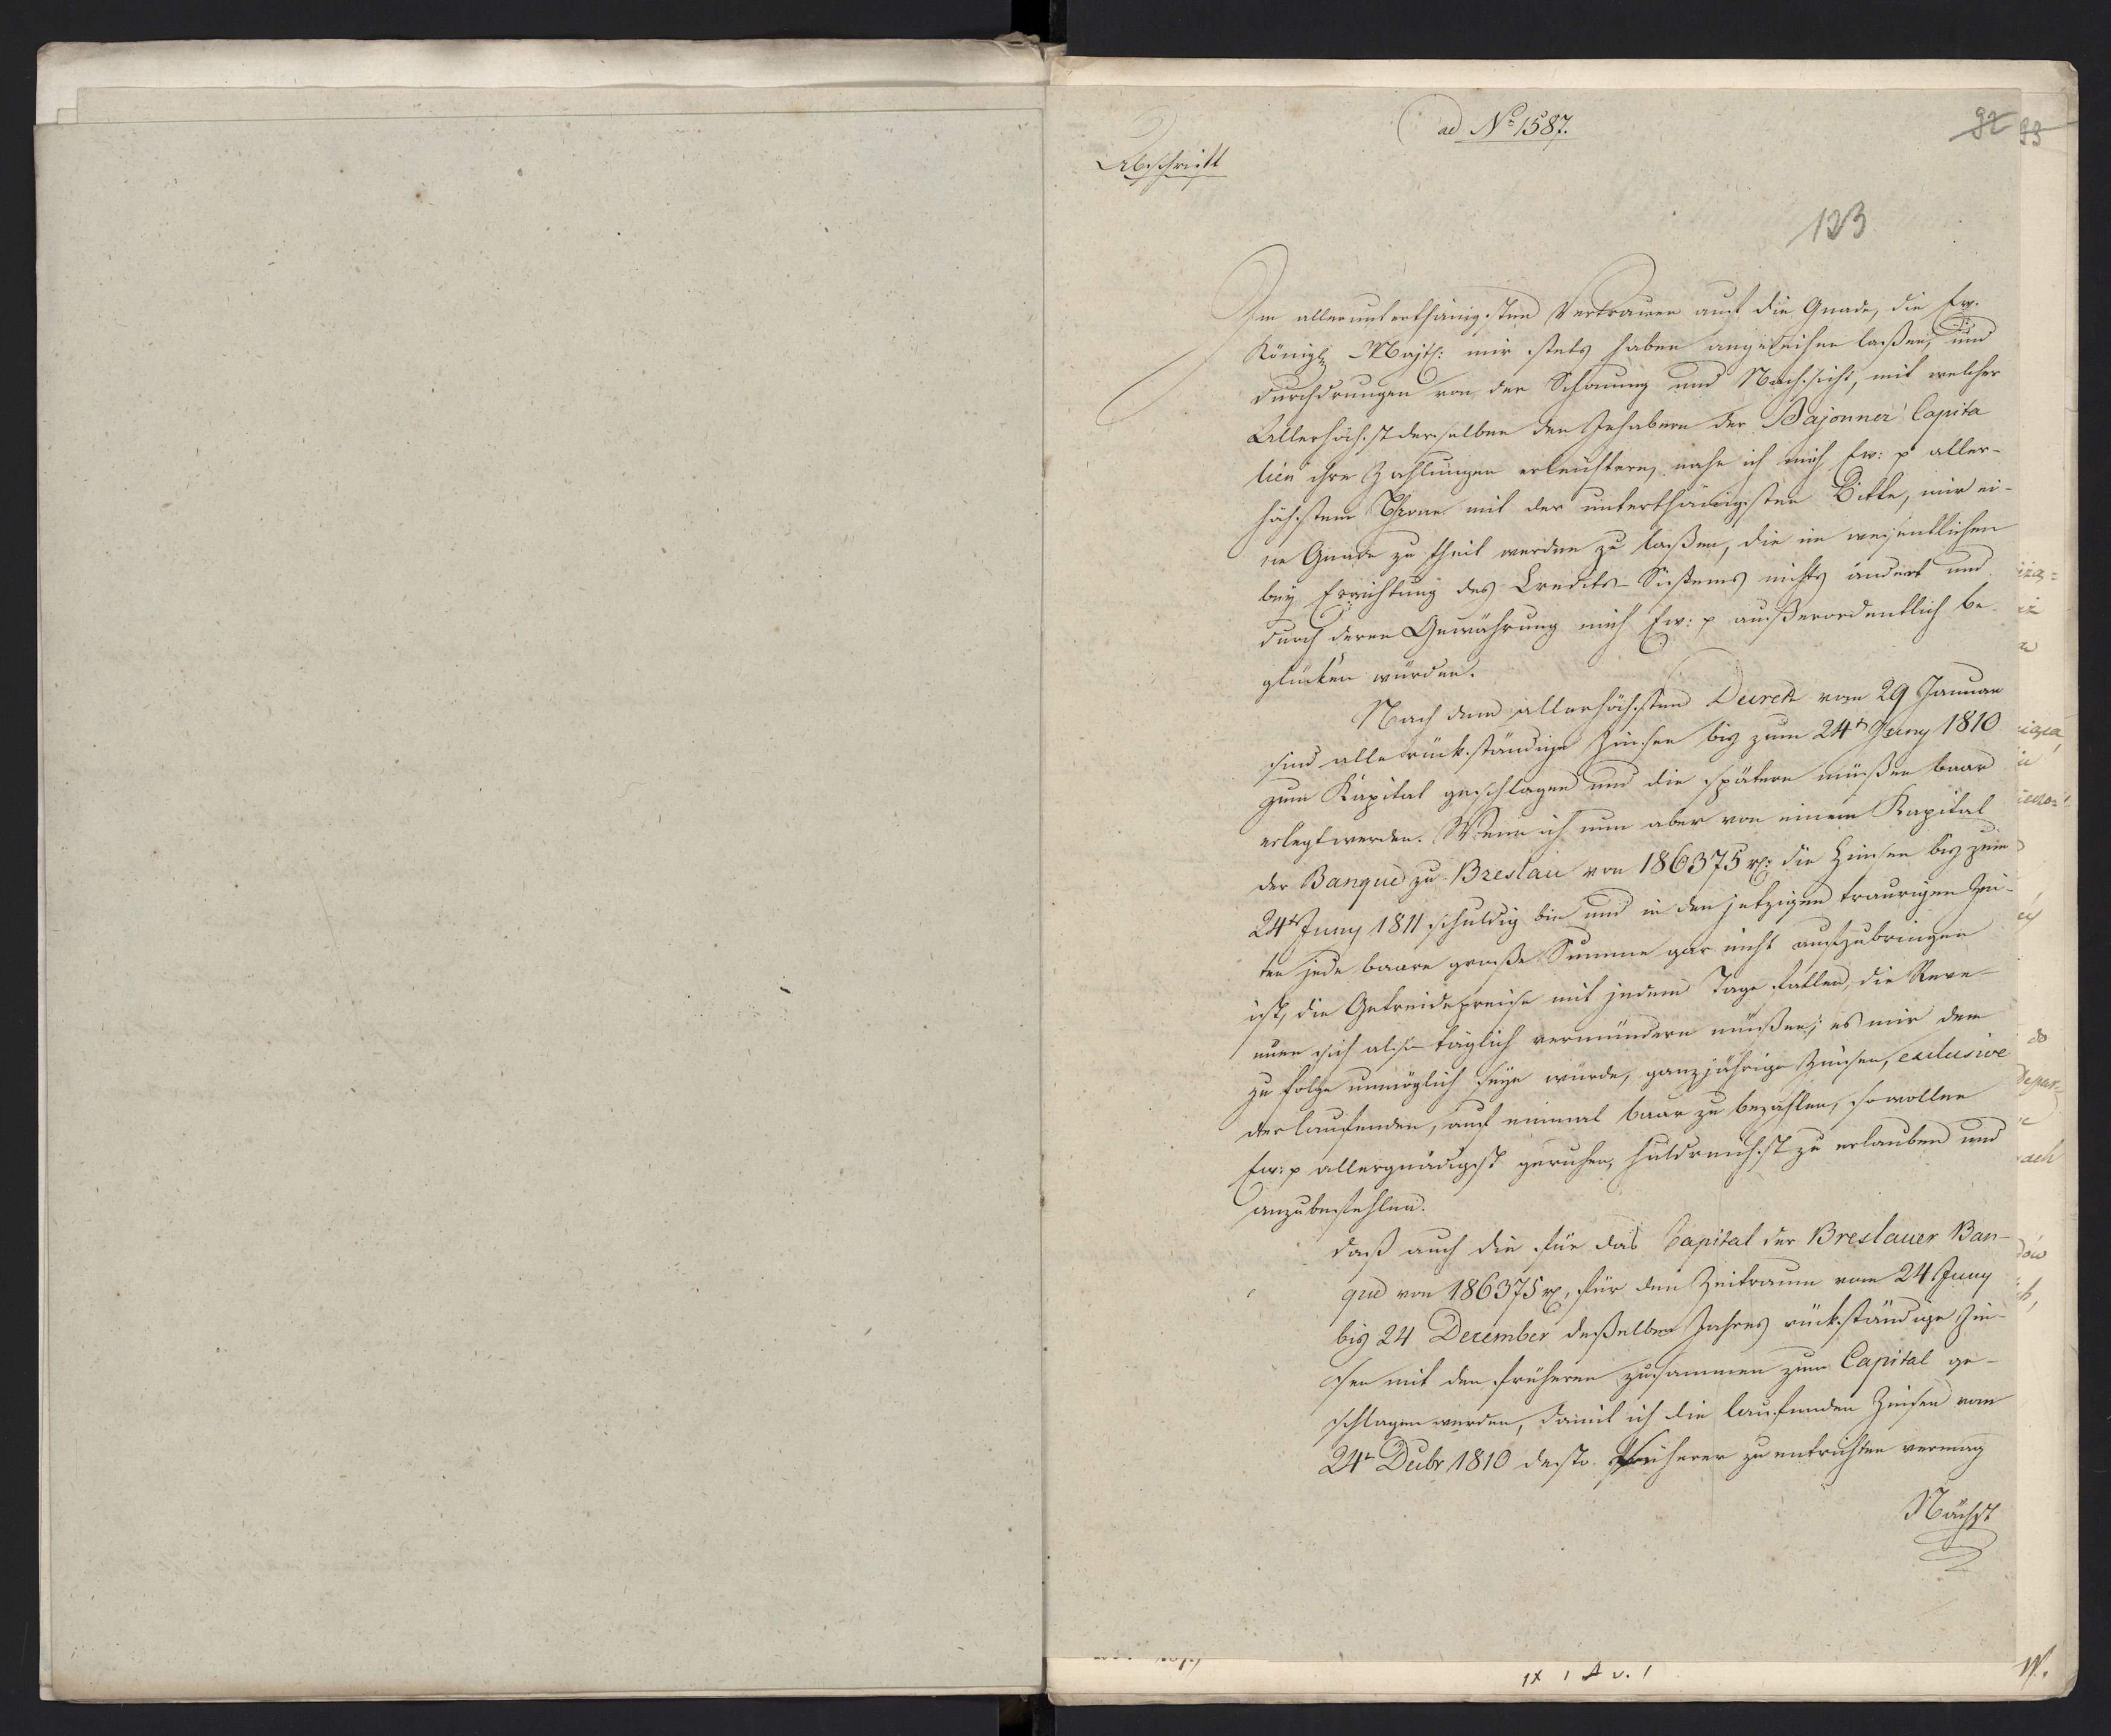 ad No 1587.
92 93
Abschrift
123
Im allerunterthänigsten Vertrauen auf die Gnade, die Ew.
Königl. Majts: mir stets haben angedeihen laßen, und
durchdrungen von der Schonung und Nachsicht, mit welcher
Allerhöchstderselben den Inhabern der Bajonner Capita
lien ihre Zahlungen erleichtern, nahe ich mich Ew: p aller-
höchstem Throne mit der unterthänigsten Bitte, mir ei-
ne Gnade zu theil werden zu laßen, die im wesentlichen
bey Errichtung des Credits-Sistems nichts ändert und
durch deren Gewährung mich Ew: p außerordentlich be-
glücken würden.
Nach dem allerhöchsten Decret vom 29 Januar
sind alle rückständige Zinsen bis zum 24t Juny 1810
zum Kapital geschlagen und die spätern müßen baar
erlegt werden. Wenn ich nun aber von einem Kapital
der Banque zu Breslau von 186375 rp: die Zinsen bis zum
24t Juny 1811 schuldig bin und in den jetzigen traurigen Zei-
ten jede baare große Summe gar nicht aufzubringen
ist, die Getreidepreise mit jedem Tage fallen, die Reve-
nüen sich also täglich vermindern müßen; es mir dem
zu folge unmöglich seyn würde, ganzjährige Zinsen, exclusive
der laufenden, auf einmal baar zu bezahlen, so wollen
Ew: p allergnädigst geruhen, huldreichst zu erlauben und
anzubefehlen.
daß auch die für das Capital der Breslauer Ban-
que von 186375 rp, für den Zeitraum vom 24 Juny
bis 24 December deßelben Jahres rückständige Zin-
sen mit den früheren zusammen zum Capital ge-
schlagen werden, damit ich die laufenden Zinsen vom
24t Decbr 1810 desto sicherer zu entrichten vermag
Nächst